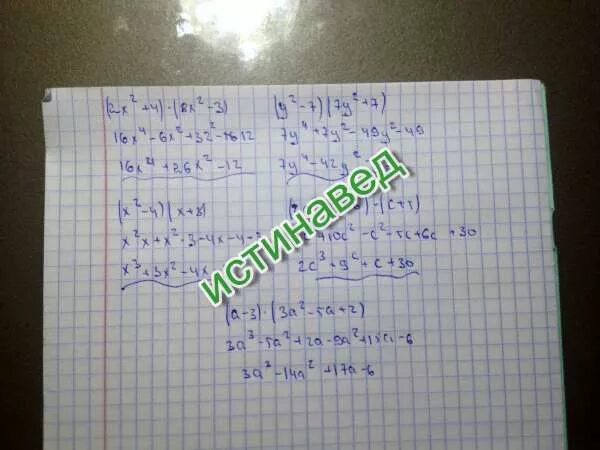 (2x² + 4) · (8x² - 3)
16x⁴ - 6x² + 32² - 12
16x⁴ + 26x² - 12
(y² - 7) (7y² + 7)
7y⁴ + 7y² - 49y² - 49
7y⁴ - 42y²
(x² - 4) (x + 3)
x²x + x² · 3 - 4x - 4
x³ + 3x² - 4x
) - (c + 5)
+10c² - c² - 5c + 6c + 30
2c³ + 9ᶜ + c + 30
(a - 3) · (3a² - 5a + 2)
3a³ - 5a² + 2a - 9a² + 15a - 6
3a³ - 14a² + 17a - 6
истинавед